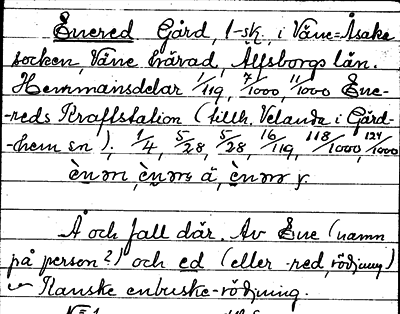 Enered Gård, 1-sk, i Väne-Åsaka
socken, Väne härad, Älfsborgs län.
Hemmansdelar 1/119, 71/1000, 11/1000 Ene-
-reds Kraftstation (tillh. Velanda i Gärd-
-hem sn), 1/4, 5/28, 5/28, 16/119, 118/1000, 124/1000
Å och fall där. Av Ene (namn
på person?) och ed (eller -red, rödjning)
Kanske enbuske-rödjning.